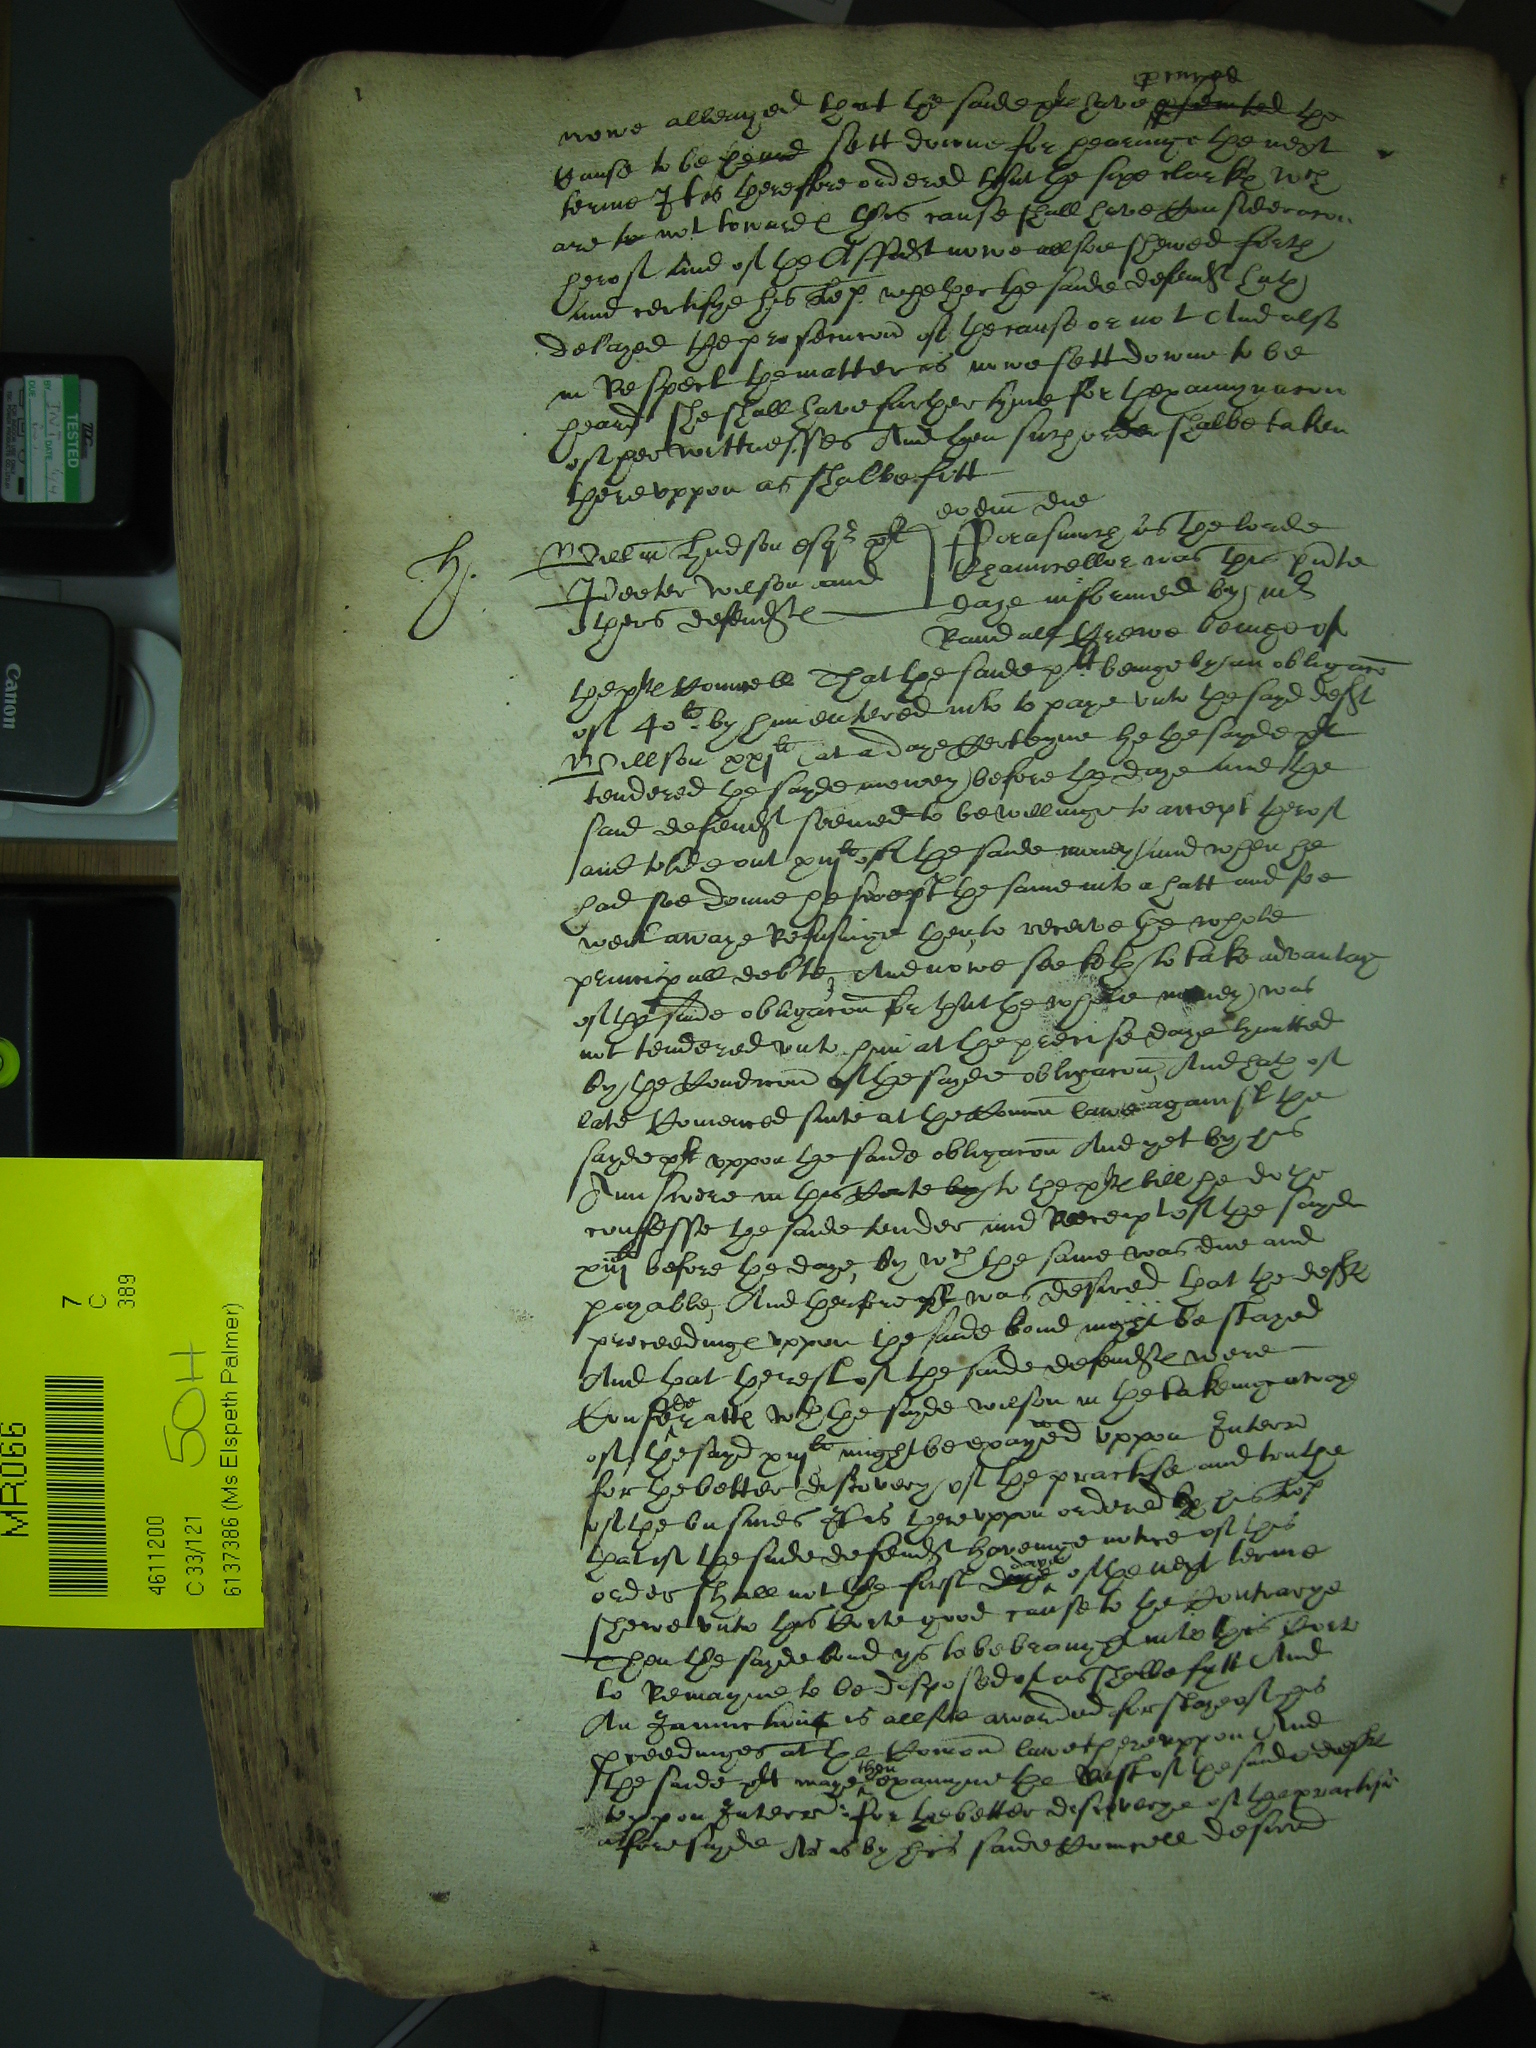 procured
nowe alleaged that the saide plt have the
cause to be heard sett downe for hearinge the next
terme It is therefore ordered that the sixe clarkes wch
are not towardes this cause shall have Consideracon
herof And of the Affidt nowe allsoe shewed forth
and certifye his Lop. whether the saide defendt hath
delayed the prosecucon of the cause or not And also
in Respect the matter is nowe sett downe to be
heard she shall have further tyme for thexamynacon
of her wittnesses And then such order shalbe taken
thereuppon as shalbe fitt
h.
Willm Hudson esqr plt
Peeter Wilson and
others defendtes
eodm die
Fforasmuch as the lorde
Chauncellor was this pnte
daye informed by mr
Randall Crewe beinge of
the pltes Councell That the saide plt beinge by an obligacon
of 40li by him entered into to paye unto the sayd deft
Willson xxjli at a daye certeyne he the sayde plt
tendered the sayde money before the daye And the
said defendt seemed to be willinge to accept therof
and tolde out xiijli of the saide money And when he
had soe donne he swept the same into a hatt and soe
went awaye Refusinge then to receive the whole
principall debte, And nowe seeketh to take advantage
of the saide obligacon for that the whole money was
not tendered unto him at the precise daye lymitted
by the Condicon of the sayde obligacon, And hath of
late Comenced suite at the Comon lawe against the
sayde plt uppon the saide obligacon And yet by his
Aunswere in this Corte to the pltes bill he dothe
confesse the saide tender and Receipt of the sayde
xiijli before the daye, by wch the same was due and
payable, And therfore yt was desired that the deftes
proceedinges uppon the saide bond might be stayed
And that the rest of the saide defendtes were
Confederattes wth the sayde wilson in the takeinge awaye
of the sayd xiijli might be examyned uppon Interr
for the better discovery of the practise and truthe
of the busines It is thereuppon ordered by his Lop
that if the saide defendt haveinge notice of this
order shall not the first daye of the next terme
shewe unto this Corte good cause to the Contrarye
Then the sayde bond ys to be brought into this Corte
to Remayne to be disposed of as shalbe fytt And
An Iniunction is allsoe awarded for staye of his
pceedinges at the Comon lawe thereuppon And
the saide plt maye then examyne the Rest of the saide deftes
uppon Interr for the better discoverye of the practise
aforesayde As is by his saide Councell desired
TESTED
INIT
DATE
BY
DUE
Canon
MR066
7
C
389
4611200
C 33/121
50H
6137386 (Ms Elspeth Palmer)